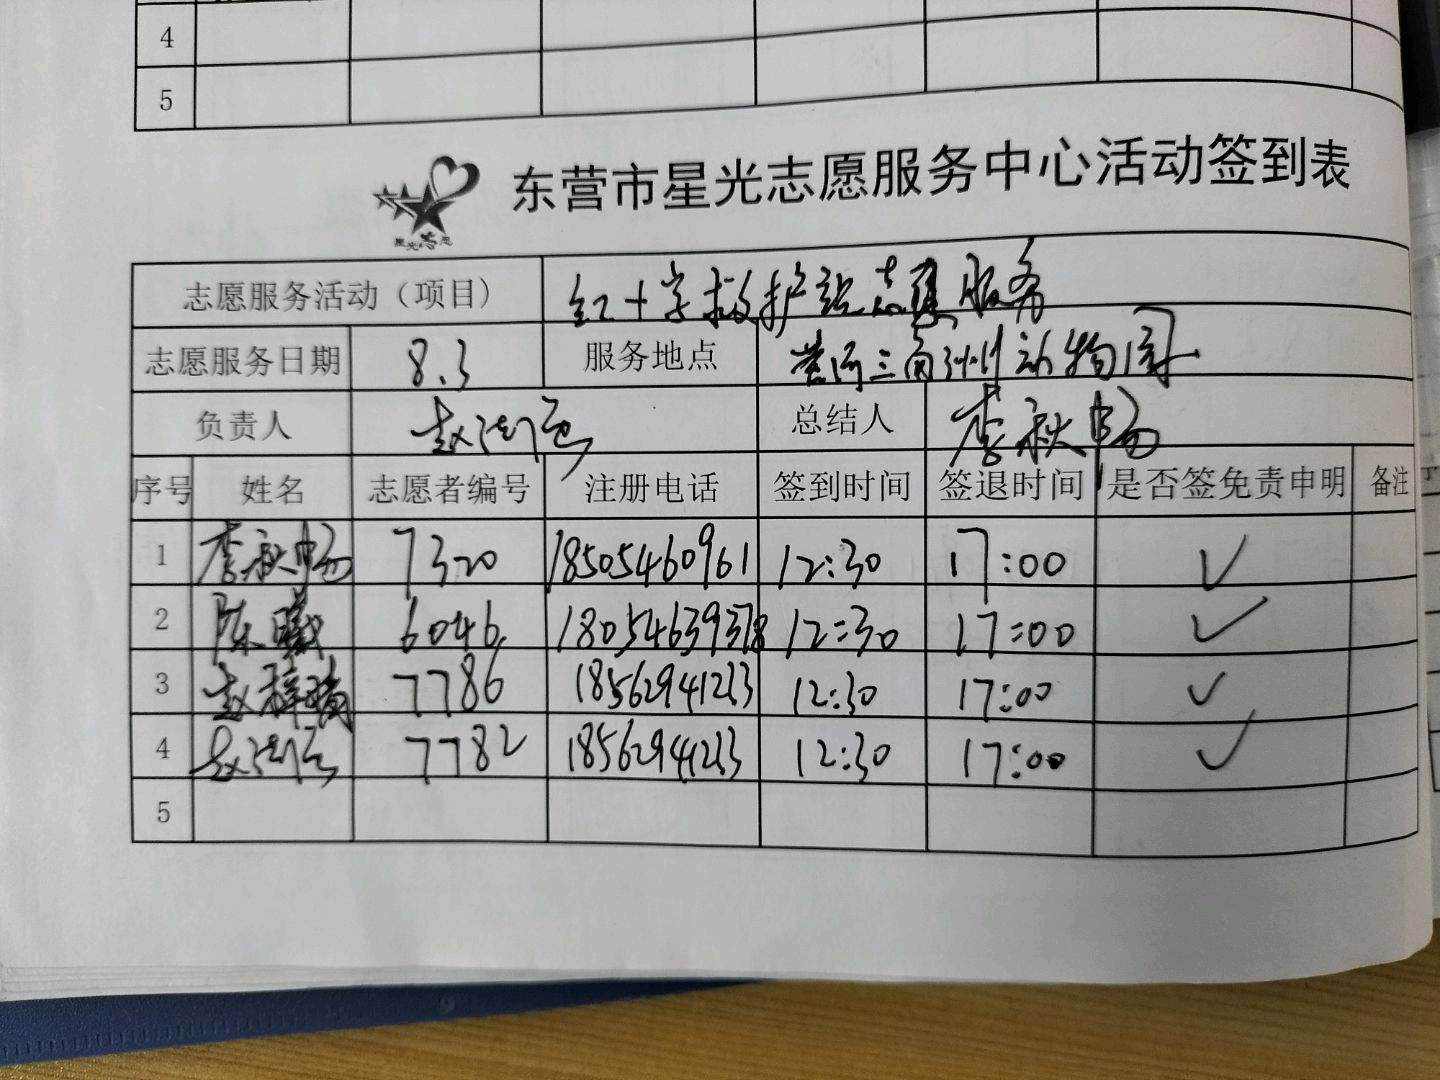 4
5
东营市星光志愿服务中心活动签到表
星光志愿
志愿服务活动（项目） 红十字救护站志愿服务
志愿服务日期 8.3 服务地点 黄河三角洲动物园
负责人 赵 总结人 李秋畅
序号 姓名 志愿者编号 注册电话 签到时间 签退时间 是否签免责申明 备注
1 李秋畅 7320 18505460961 12:30 17:00 ✓
2 陈曦 6046 18054639378 12:30 17:00 ✓
3 赵梓 7786 18562941233 12:30 17:00 ✓
4 赵 7782 18562941233 12:30 17:00 ✓
5